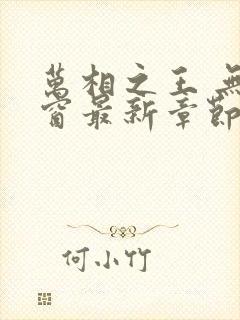 萬相之王 無
窗最新章節
何小竹